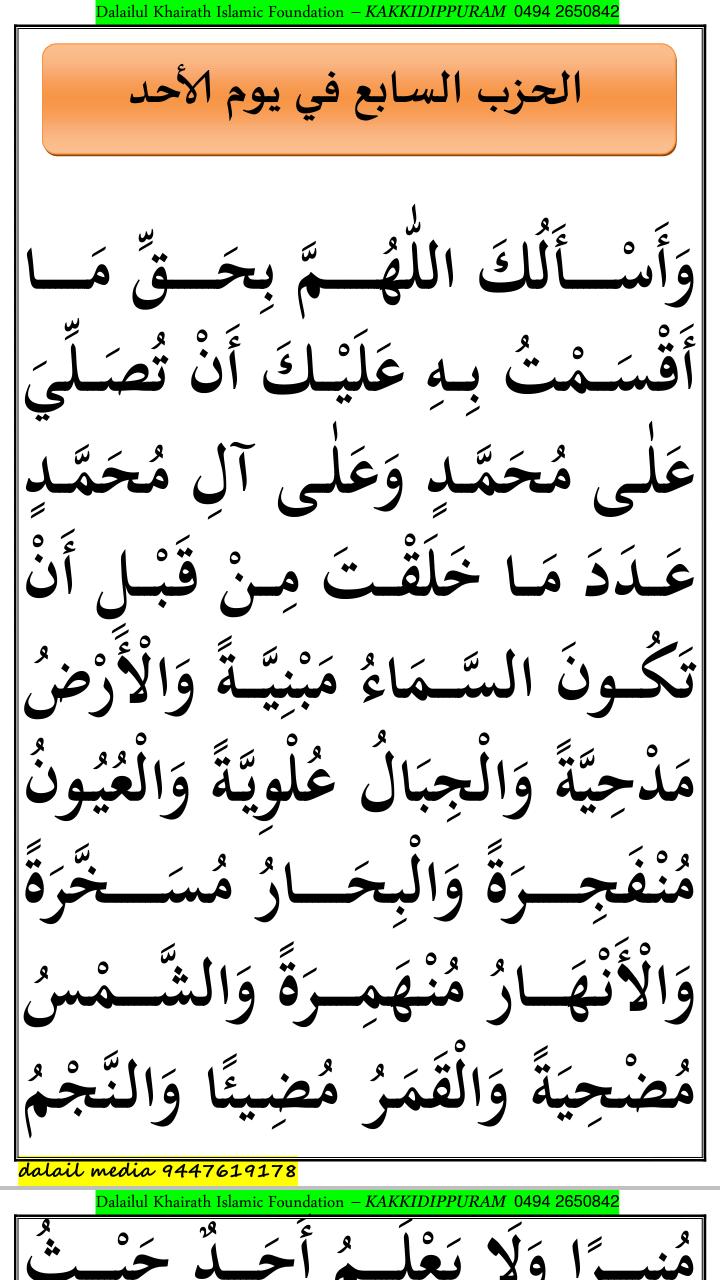 Dalailul Khairath Islamic Foundation – KAKKIDIPPURAM 0494 2650842
الحزب السابع في يوم الأحد
وَأَسْأَلُكَ اللّٰهُمَّ بِحَقِّ مَا
أَقْسَمْتُ بِهِ عَلَيْكَ أَنْ تُصَلِّيَ
عَلٰى مُحَمَّدٍ وَعَلٰى آلِ مُحَمَّدٍ
عَدَدَ مَا خَلَقْتَ مِنْ قَبْلِ أَنْ
تَكُونَ السَّمَاءُ مَبْنِيَّةً وَالْأَرْضُ
مَدْحِيَّةً وَالْجِبَالُ عُلْوِيَّةً وَالْعُيُونُ
مُنْفَجِرَةً وَالْبِحَارُ مُسَخَّرَةً
وَالْأَنْهَارُ مُنْهَمِرَةً وَالشَّمْسُ
مُضْحِيَةً وَالْقَمَرُ مُضِيئًا وَالنَّجْمُ
dalail media 9447619178
Dalailul Khairath Islamic Foundation – KAKKIDIPPURAM 0494 2650842
مُنِيرًا وَلَا يَعْلَمُ أَحَدٌ حَيْثُ